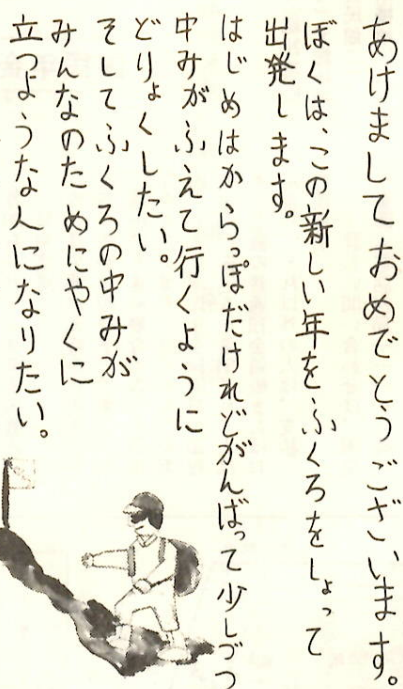 あけましておめでとうございます。
ぼくは、この新しい年をふくろをしょって
出発します。
はじめはからっぽだけれどがんばって少しづつ
中みがふえて行くように
どりょくしたい。
そしてふくろの中みが
みんなのためにやくに
立つような人になりたい。